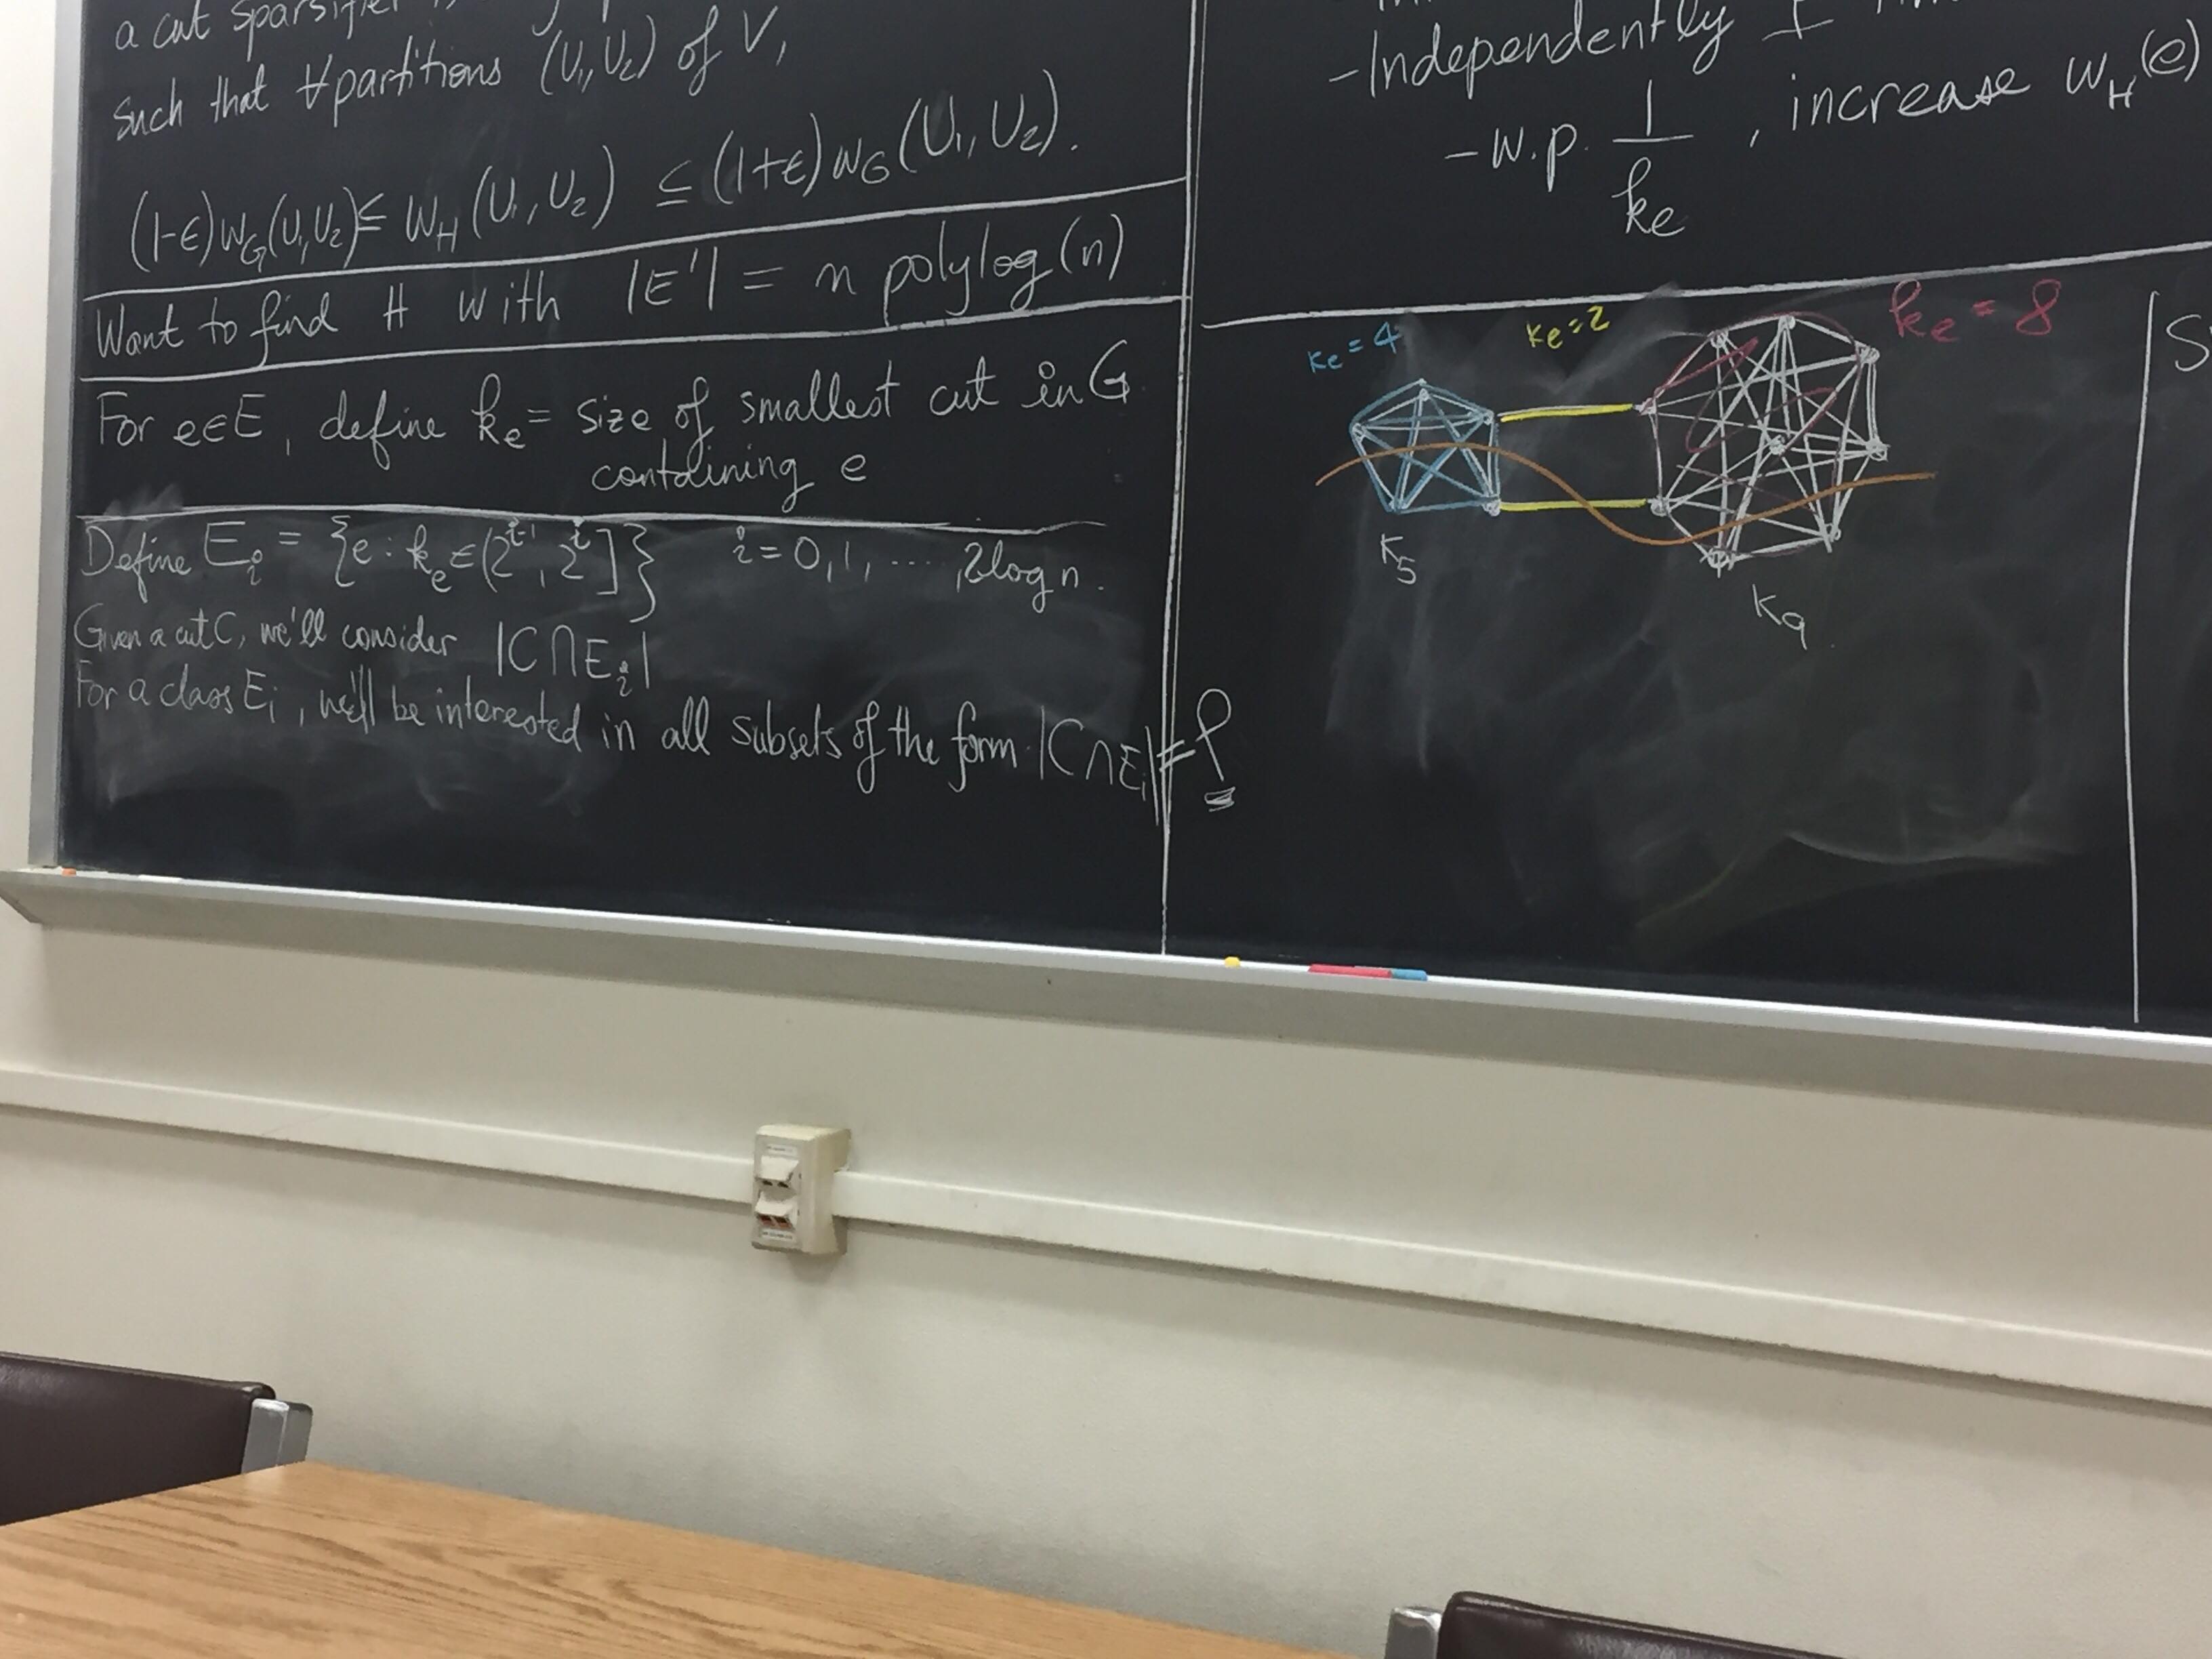 a cut sparsifier
such that ∀ partitions (U₁, U₂) of V,
(1-ϵ)w_G(U₁,U₂) ≤ w_H(U₁,U₂) ≤ (1+ϵ)w_G(U₁,U₂).
Want to find H with |E'| = n polylog(n)
For e∈E, define k_e = size of smallest cut in G
containing e
Define E_i = {e : k_e ∈ (2^{i-1}, 2^i]} i = 0, 1, ...., 2log n.
Given a cut C, we'll consider |C∩E_i|
For a class E_i, we'll be interested in all subsets of the form |C∩E_i| = P
-Independently
-w.p. 1/k_e , increase w_H(e)
k_e = 4
k_e = 2
k_e = 8
K_5
K_9
S